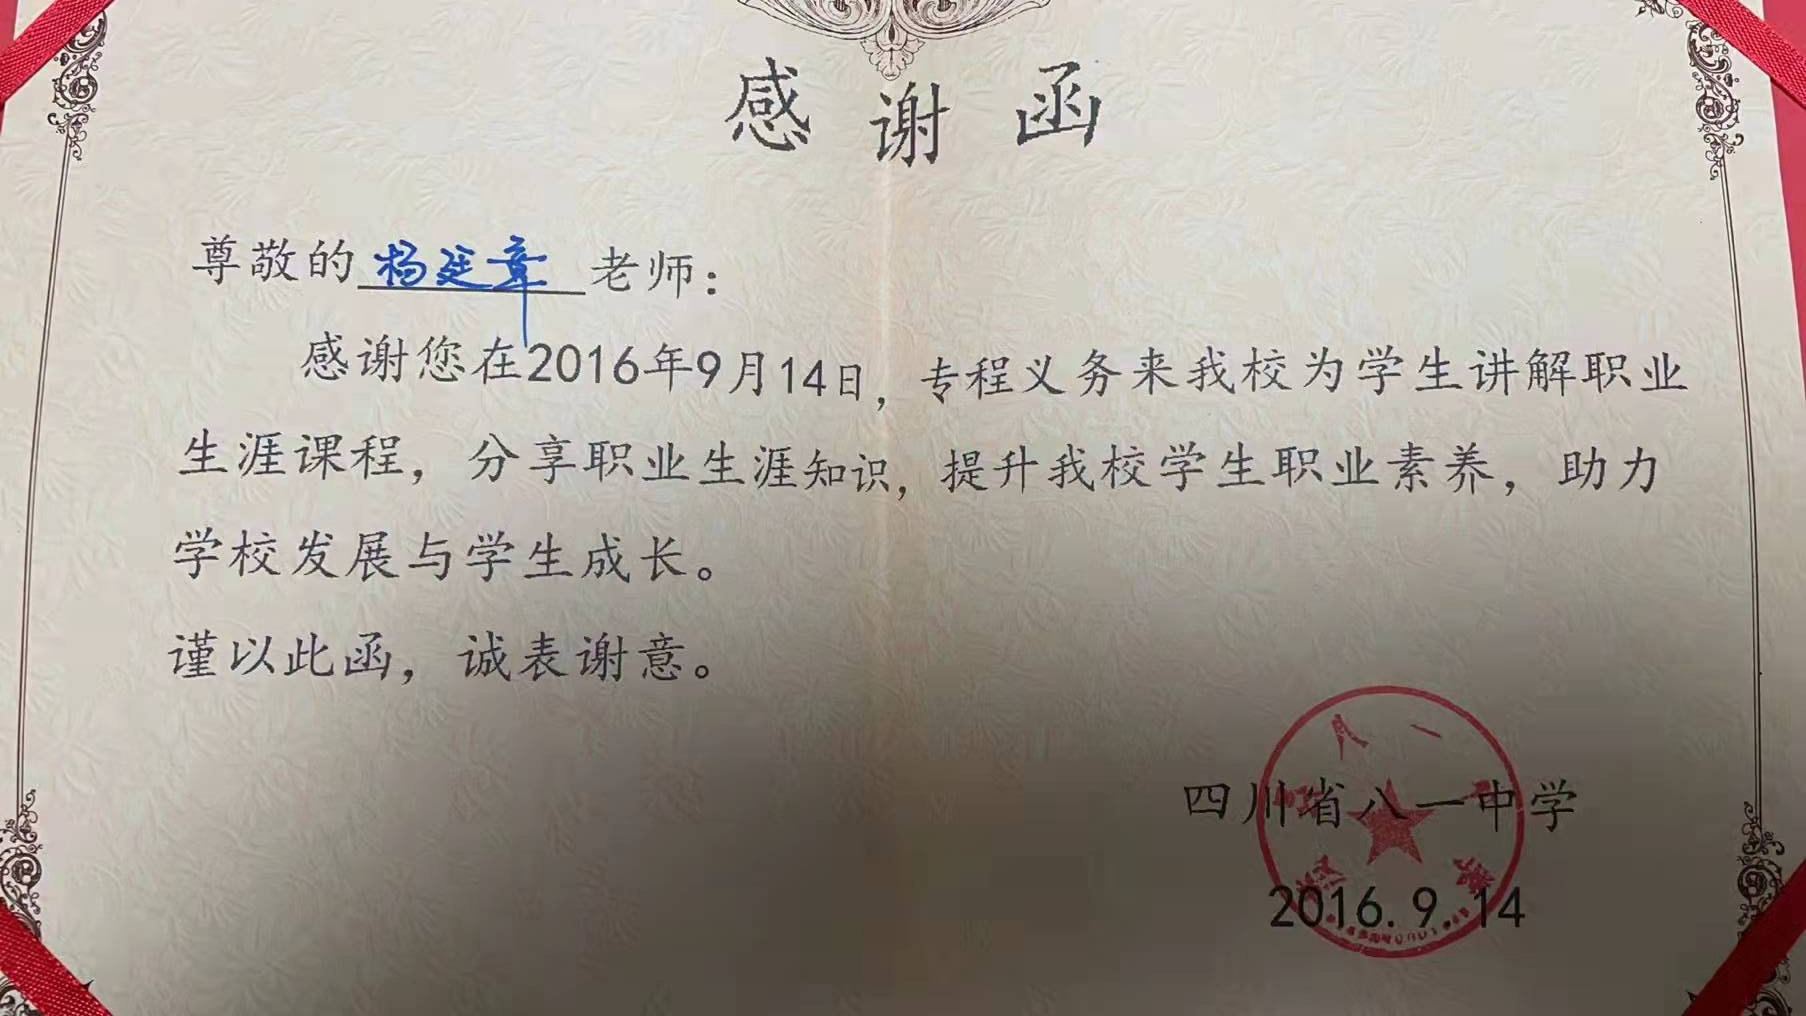 感谢函
尊敬的杨廷章老师：
感谢您在2016年9月14日，专程义务来我校为学生讲解职业
生涯课程，分享职业生涯知识，提升我校学生职业素养，助力
学校发展与学生成长。
谨以此函，诚表谢意。
四川省八一中学
2016.9.14